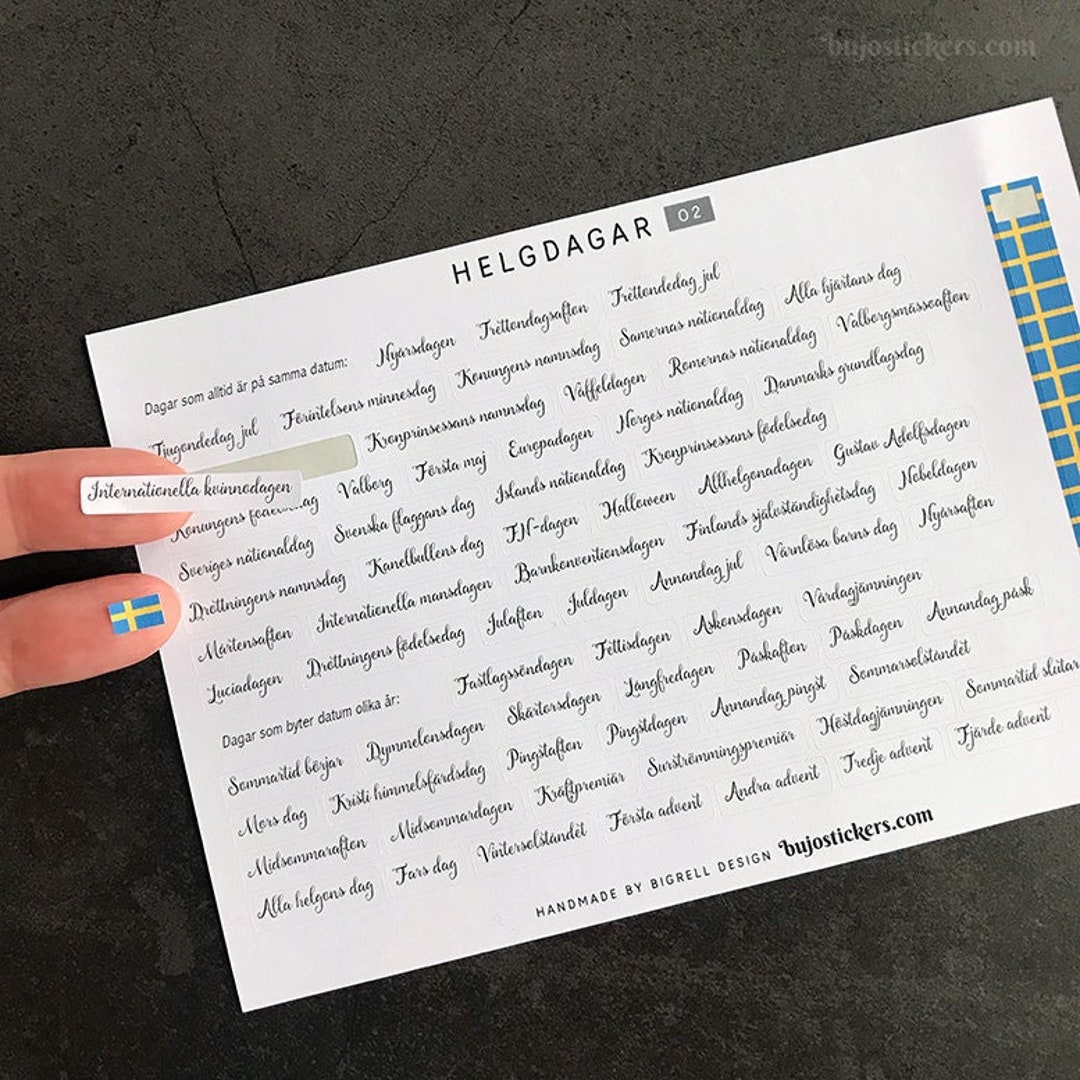 bujostickers.com
HELGDAGAR 02
Dagar som alltid är på samma datum: Nyårsdagen Trettondagsafton Trettondedag jul
Tjugondedag jul Förintelsens minnesdag Konungens namnsdag Samernas nationaldag Alla hjärtans dag
Internationella kvinnodagen Kronprinsessans namnsdag Våffeldagen Romernas nationaldag Valborgsmässoafton
Konungens Valborg Första maj Europadagen Norges nationaldag Danmarks grundlagsdag
Sveriges nationaldag Svenska flaggans dag Islands nationaldag Kronprinsessans födelsedag
Drottningens namnsdag Kanelbullens dag FN-dagen Halloween Allhelgonadagen Gustav Adolfsdagen
Mårtensafton Internationella mansdagen Barnkonventionsdagen Finlands självständighetsdag Nobeldagen
Luciadagen Drottningens födelsedag Julafton Juldagen Annandag jul Värnlösa barns dag Nyårsafton
Dagar som byter datum olika år: Fastlagssöndagen Fettisdagen Askonsdagen Vårdagjämningen
Sommartid börjar Dymmelonsdagen Skärtorsdagen Långfredagen Påskafton Påskdagen Annandag påsk
Mors dag Kristi himmelsfärdsdag Pingstafton Pingstdagen Annandag pingst Sommarsolståndet
Midsommarafton Midsommardagen Kräftpremiär Surströmmingspremiär Höstdagjämningen Sommartid slutar
Alla helgons dag Fars dag Vintersolståndet Första advent Andra advent Tredje advent Fjärde advent
HANDMADE BY BIGRELL DESIGN bujostickers.com